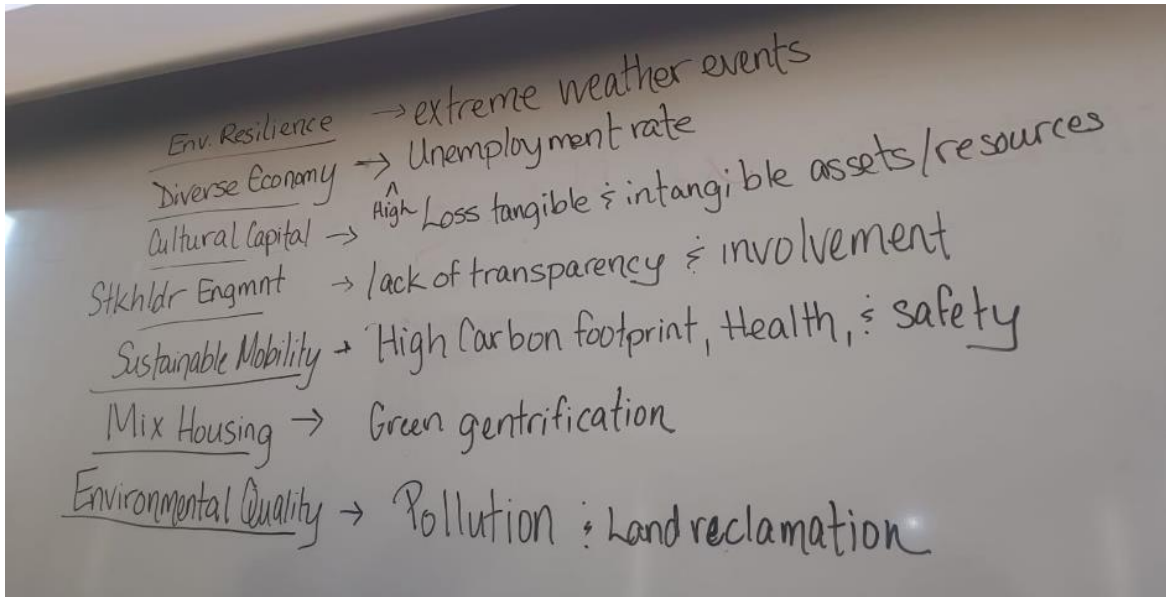 Env. Resilience → extreme weather events
Diverse Economy → ^High Unemployment rate
Cultural Capital → Loss tangible & intangible assets/resources
Stkhldr Engmnt → lack of transparency & involvement
Sustainable Mobility → High Carbon footprint, Health, & safety
Mix Housing → Green gentrification
Environmental Quality → Pollution & Land reclamation